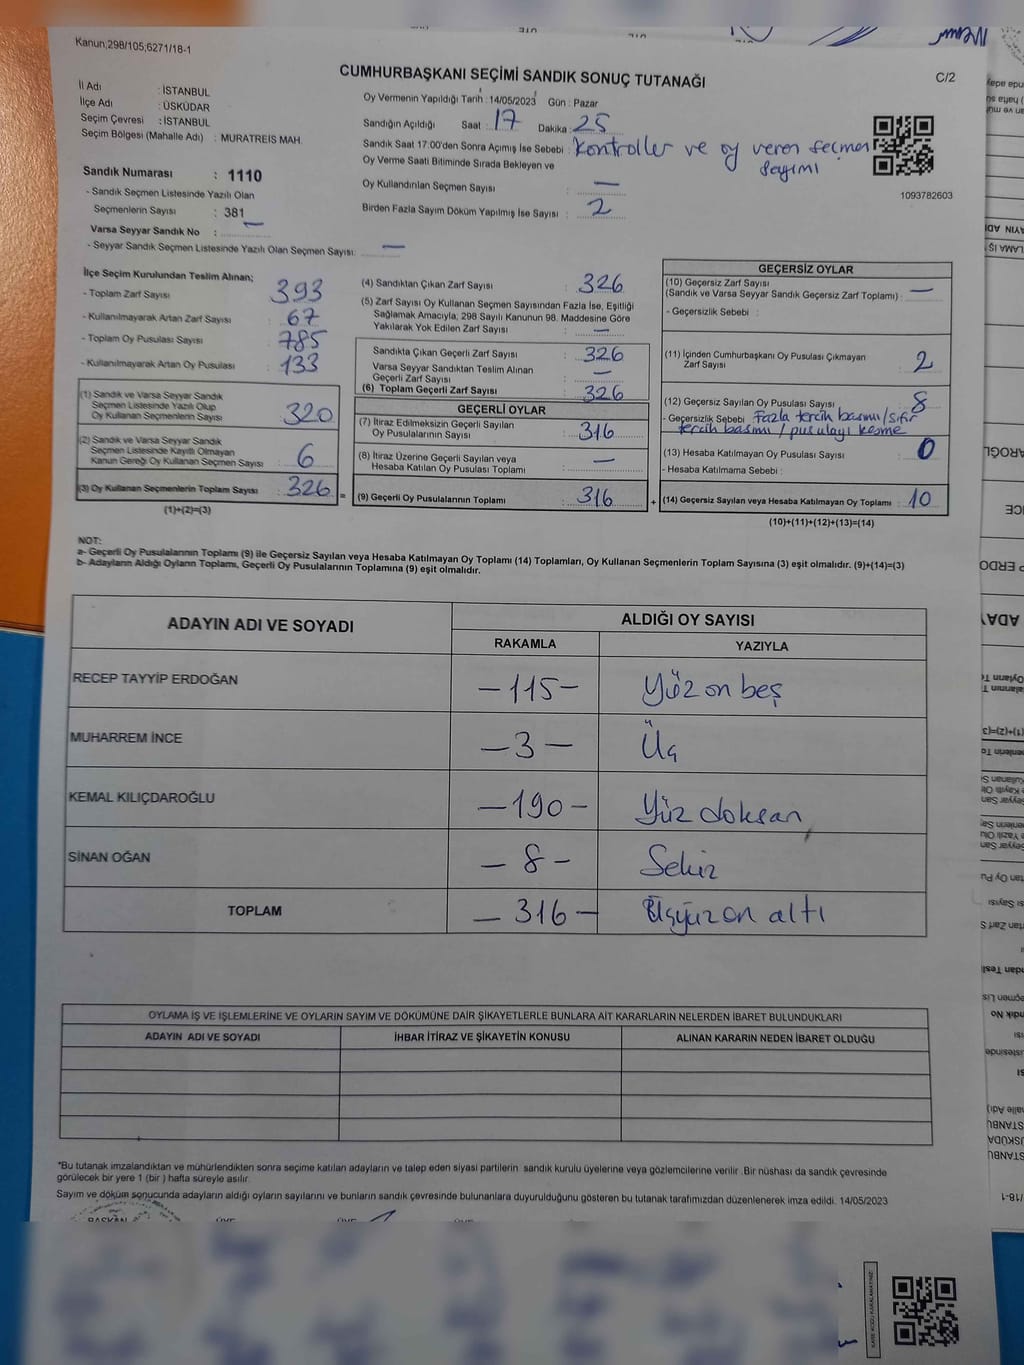 Kanun;298/105;6271/18-1
CUMHURBAŞKANI SEÇİMİ SANDIK SONUÇ TUTANAĞI
C/2
İl Adı : İSTANBUL
İlçe Adı : ÜSKÜDAR
Seçim Çevresi : İSTANBUL
Seçim Bölgesi (Mahalle Adı) : MURATREİS MAH.
Sandık Numarası : 1110
- Sandık Seçmen Listesinde Yazılı Olan
Seçmenlerin Sayısı : 381
Varsa Seyyar Sandık No : —
- Seyyar Sandık Seçmen Listesinde Yazılı Olan Seçmen Sayısı: —
Oy Vermenin Yapıldığı Tarih : 14/05/2023 Gün : Pazar
Sandığın Açıldığı Saat : 17 Dakika : 25
Sandık Saat 17:00'den Sonra Açımış İse Sebebi : Kontroller ve oy veren seçmen
sayımı
Oy Verme Saati Bitiminde Sırada Bekleyen ve
Oy Kullandırılan Seçmen Sayısı : —
Birden Fazla Sayım Döküm Yapılmış İse Sayısı : 2
1093782603
İlçe Seçim Kurulundan Teslim Alınan;
- Toplam Zarf Sayısı : 393
- Kullanılmayarak Artan Zarf Sayısı : 67
- Toplam Oy Pusulası Sayısı : 785
- Kullanılmayarak Artan Oy Pusulası : 133
(1) Sandık ve Varsa Seyyar Sandık
Seçmen Listesinde Yazılı Olup
Oy Kullanan Seçmenlerin Sayısı : 320
(2) Sandık ve Varsa Seyyar Sandık
Seçmen Listesinde Kayıtlı Olmayan
Kanun Gereği Oy Kullanan Seçmen Sayısı : 6
(3) Oy Kullanan Seçmenlerin Toplam Sayısı : 326 =
(1)+(2)=(3)
(4) Sandıktan Çıkan Zarf Sayısı : 326
(5) Zarf Sayısı Oy Kullanan Seçmen Sayısından Fazla İse, Eşitliği
Sağlamak Amacıyla, 298 Sayılı Kanunun 98. Maddesine Göre
Yakılarak Yok Edilen Zarf Sayısı : —
Sandıkta Çıkan Geçerli Zarf Sayısı : 326
Varsa Seyyar Sandıktan Teslim Alınan
Geçerli Zarf Sayısı : —
(6) Toplam Geçerli Zarf Sayısı : 326
GEÇERLİ OYLAR
(7) İtiraz Edilmeksizin Geçerli Sayılan
Oy Pusulalarının Sayısı : 316
(8) İtiraz Üzerine Geçerli Sayılan veya
Hesaba Katılan Oy Pusulası Toplamı : —
(9) Geçerli Oy Pusulalarının Toplamı : 316 +
GEÇERSİZ OYLAR
(10) Geçersiz Zarf Sayısı
(Sandık ve Varsa Seyyar Sandık Geçersiz Zarf Toplamı) : —
- Geçersizlik Sebebi :
(11) İçinden Cumhurbaşkanı Oy Pusulası Çıkmayan
Zarf Sayısı : 2
(12) Geçersiz Sayılan Oy Pusulası Sayısı : 8
- Geçersizlik Sebebi : Fazla tercih basımı/sıfır
tercih basımı / pusulayı kesme
(13) Hesaba Katılmayan Oy Pusulası Sayısı : 0
- Hesaba Katılmama Sebebi :
(14) Geçersiz Sayılan veya Hesaba Katılmayan Oy Toplamı : 10
(10)+(11)+(12)+(13)=(14)
NOT:
a- Geçerli Oy Pusulalarının Toplamı (9) ile Geçersiz Sayılan veya Hesaba Katılmayan Oy Toplamı (14) Toplamları, Oy Kullanan Seçmenlerin Toplam Sayısına (3) eşit olmalıdır. (9)+(14)=(3)
b- Adayların Aldığı Oyların Toplamı, Geçerli Oy Pusulalarının Toplamına (9) eşit olmalıdır.
ADAYIN ADI VE SOYADI
ALDIĞI OY SAYISI
RAKAMLA YAZIYLA
RECEP TAYYİP ERDOĞAN —115— Yüz on beş
MUHARREM İNCE —3— Üç
KEMAL KILIÇDAROĞLU —190— Yüz doksan
SİNAN OĞAN —8— Sekiz
TOPLAM —316— Üçyüz on altı
OYLAMA İŞ VE İŞLEMLERİNE VE OYLARIN SAYIM VE DÖKÜMÜNE DAİR ŞİKAYETLERLE BUNLARA AİT KARARLARIN NELERDEN İBARET BULUNDUKLARI
ADAYIN ADI VE SOYADI İHBAR İTİRAZ VE ŞİKAYETİN KONUSU ALINAN KARARIN NEDEN İBARET OLDUĞU
*Bu tutanak imzalandıktan ve mühürlendikten sonra seçime katılan adayların ve talep eden siyasi partilerin sandık kurulu üyelerine veya gözlemcilerine verilir. Bir nüshası da sandık çevresinde
görülecek bir yere 1 (bir ) hafta süreyle asılır.
Sayım ve döküm sonucunda adayların aldığı oyların sayılarını ve bunların sandık çevresinde bulunanlara duyurulduğunu gösteren bu tutanak tarafımızdan düzenlenerek imza edildi. 14/05/2023
BAŞKAN